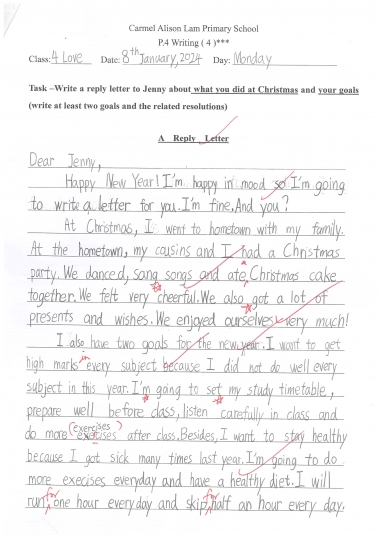 Carmel Alison Lam Primary School
P.4 Writing ( 4 )***
Class: 4 Love Date: 8th January, 2024 Day: Monday
Task –Write a reply letter to Jenny about what you did at Christmas and your goals
(write at least two goals and the related resolutions)
A Reply Letter
Dear Jenny,
Happy New Year! I'm happy in mood so I'm going
to write a letter for you. I'm fine. And you?
At Christmas, I went to hometown with my family.
At the hometown, my cousins and I had a Christmas
party. We danced, sang songs and ate Christmas cake
together. We felt very cheerful. We also got a lot of
presents and wishes. We enjoyed ourselves very much!
I also have two goals for the new year. I want to get
high marks in every subject because I did not do well every
subject in this year. I'm going to set my study timetable,
prepare well before class, listen carefully in class and
(exercises)
do more exercises after class. Besides, I want to stay healthy
because I got sick many times last year. I'm going to do
more execises everyday and have a healthy diet. I will
run for one hour everyday and skip for half an hour every day.